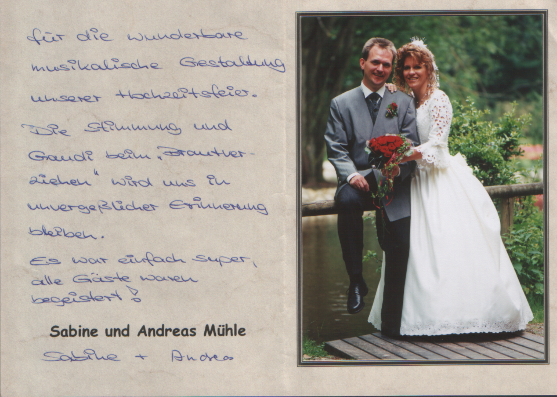 für die wunderbare
musikalische Gestaltung
unserer Hochzeitsfeier.
Die Stimmung und
Gaudi beim „Brautver-
ziehen" wird uns in
unvergeßlicher Erinnerung
bleiben.
Es war einfach super,
alle Gäste waren
begeistert!
Sabine und Andreas Mühle
Sabine + Andreas